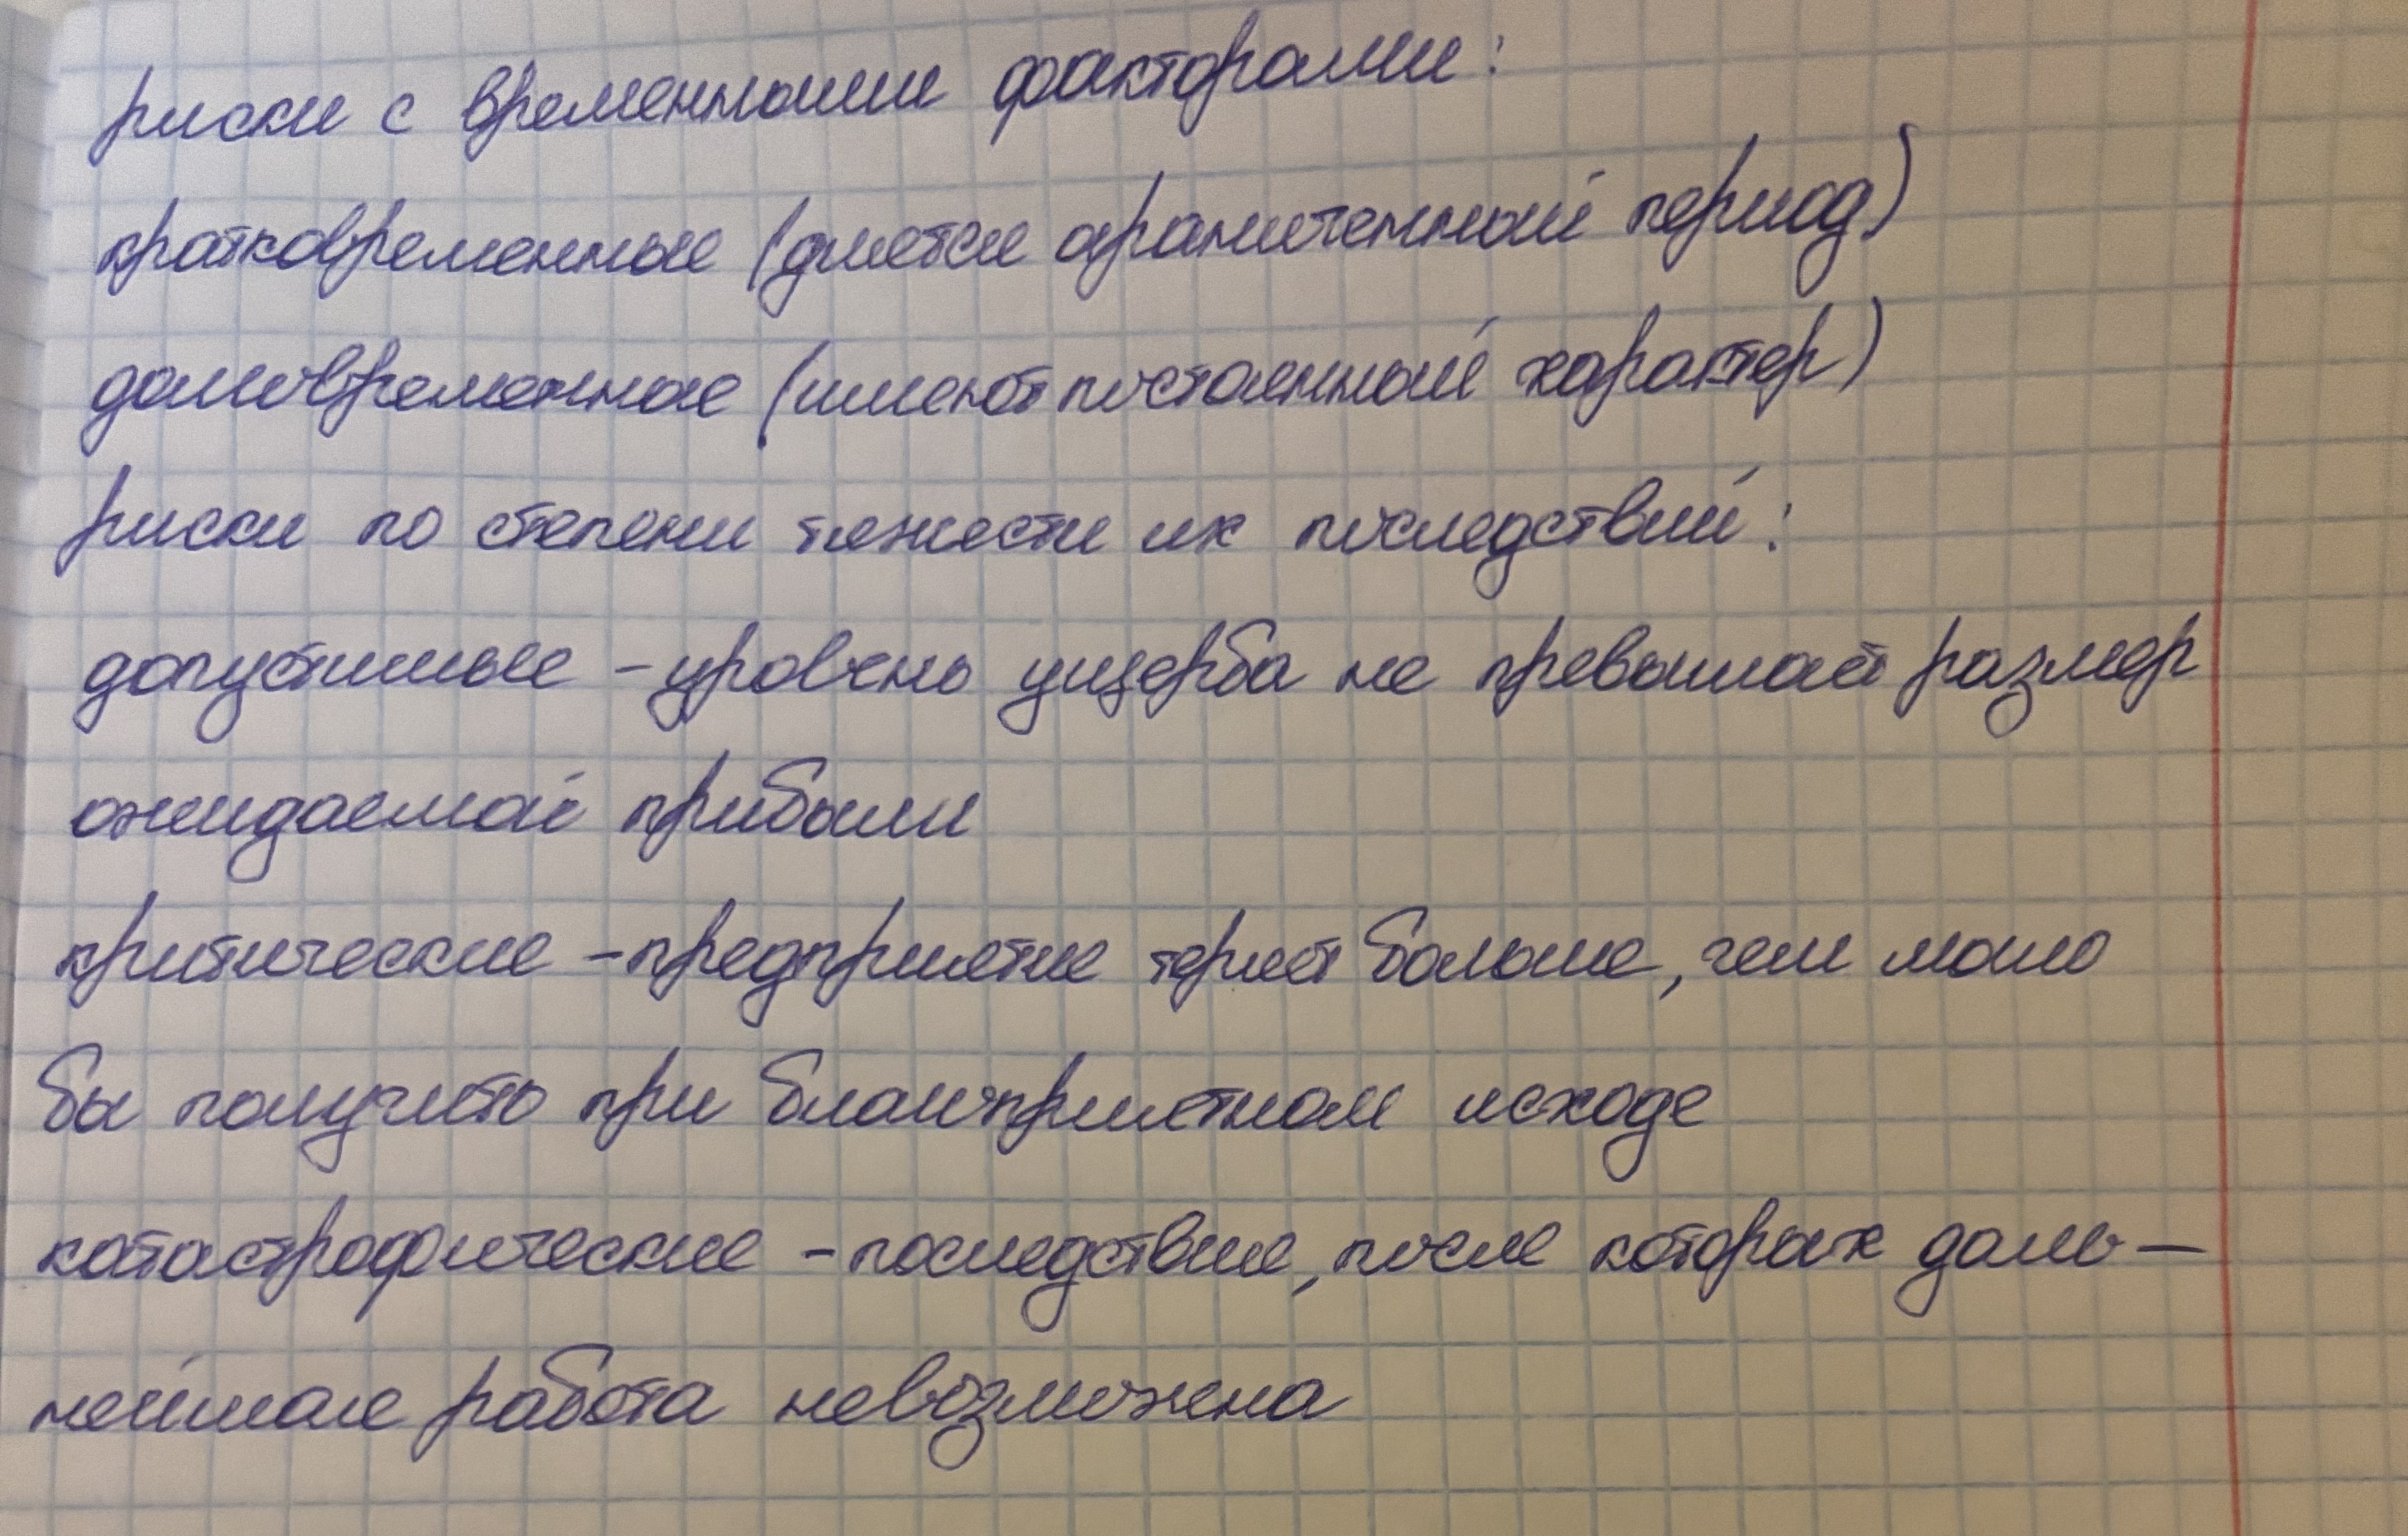 риски с временными факторами:
кратковременные (длится ограниченный период)
долговременные (имеют постоянный характер)
риски по степени тяжести их последствий:
допустимые - уровень ущерба не превышает размер
ожидаемой прибыли
критические - предприятие теряет больше, чем могло
бы получить при благоприятном исходе
катастрофические - последствие, после которых даль-
нейшая работа невозможна